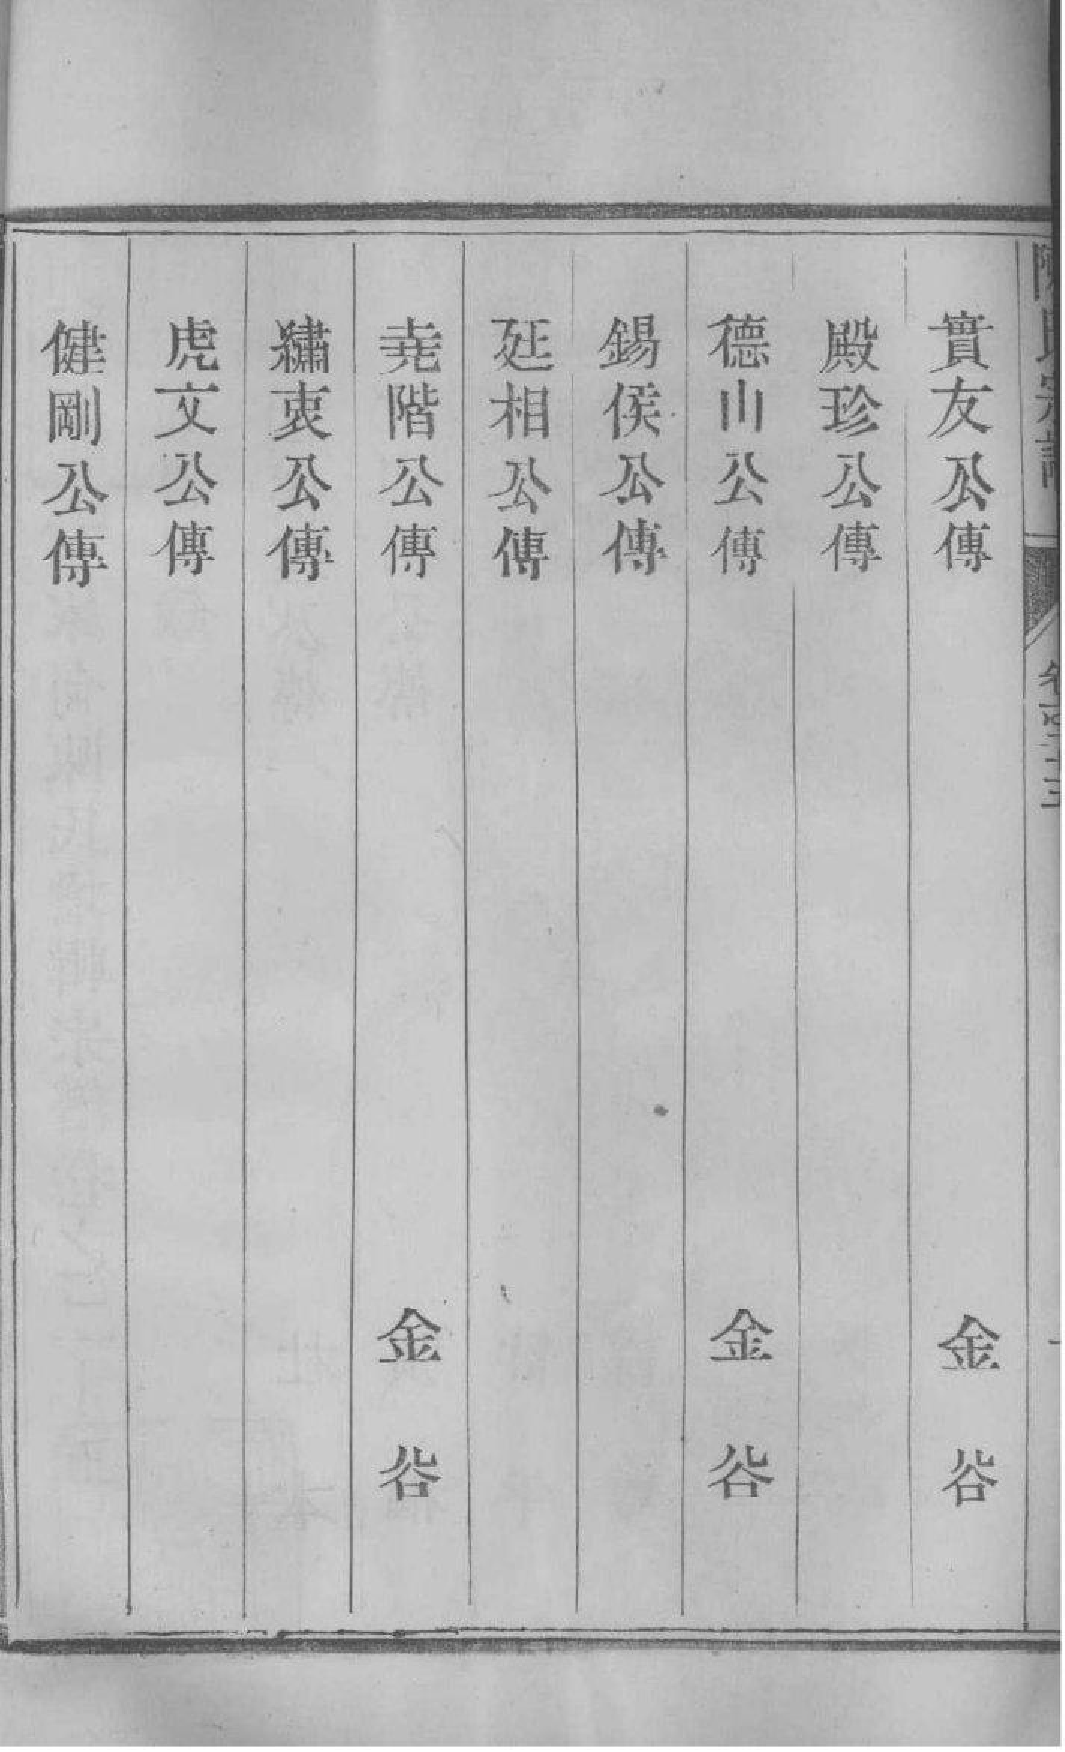 陳氏宗譜
實友公傳 金谷
殿珍公傳
德山公傳 金谷
錫侯公傳
延相公傳
堯階公傳 金谷
繡衷公傳
虎文公傳
健剛公傳